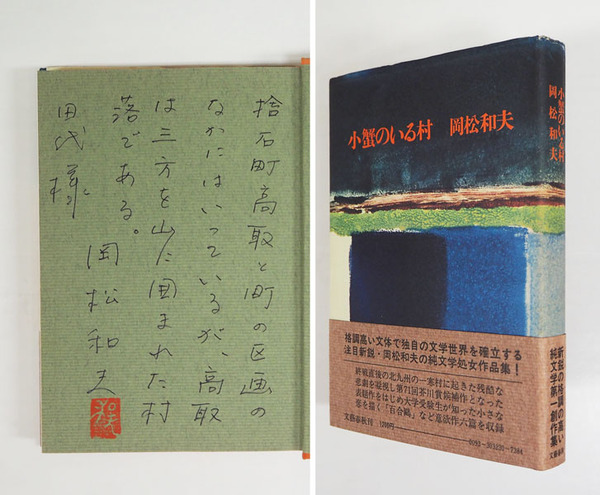 捨石町高取と町の区画の
なかにはいっているが、高取
は三方を山に囲まれた村
落である。
岡松和夫
田代様
小蟹のいる村 岡松和夫
格調高い文体で独自の文学世界を確立する
注目新鋭・岡松和夫の純文学処女作品集!
終戦直後の北九州の一寒村に起きた残酷な
悲劇を凝視し第71回芥川賞候補作となった
表題作をはじめ大学受験生が知った小さな
恋を描く「百合鷗」など意欲作六篇を収録
文藝春秋刊
小蟹のいる村
岡松和夫
新鋭の格調の高い
純文学第一創作集
文藝春秋